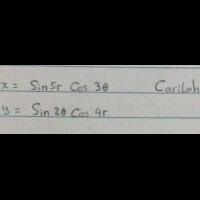 x = Sin 5r Cos 3θ Carilah
y = Sin 2θ Cos 4r